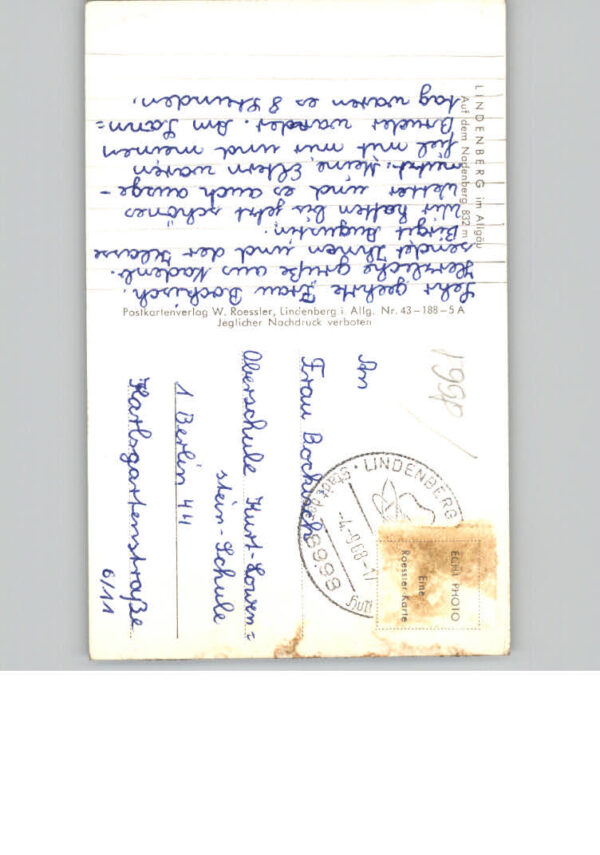 LINDENBERG im Allgäu
Auf dem Nadenberg 832 m
Sehr geehrte Frau Bockisch.
Herzliche grüße aus Nadenb.
sendet Ihnen und der Klasse
Birgit Augustin.
Wir hatten bis jetzt schönes
Wetter und es auch ausge-
nützt. Meine Eltern waren
viel mit mir und meinen
Bruder wander. Am Sonn=
tag waren es 8 Stunden.
Postkartenverlag W. Roessler, Lindenberg i. Allg. Nr. 43–188–5 A
Jeglicher Nachdruck verboten
1968
An
Frau Bockisch
Oberschule Kurt-Löwen=
stein-Schule
1 Berlin 44
Karlsgartenstraße
6/11
8998 LINDENBERG
Stadt der
-4.-9.68-17
ECHT PHOTO
Eine
Roessler-Karte